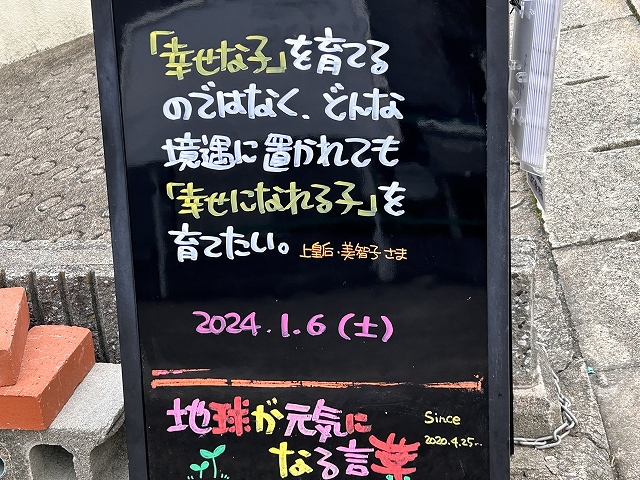 「幸せな子」を育てる
のではなく、どんな
境遇に置かれても
「幸せになれる子」を
育てたい。 上皇后・美智子さま
2024.1.6(土)
地球が元気に
なる言葉
Since
2020.4.25〜